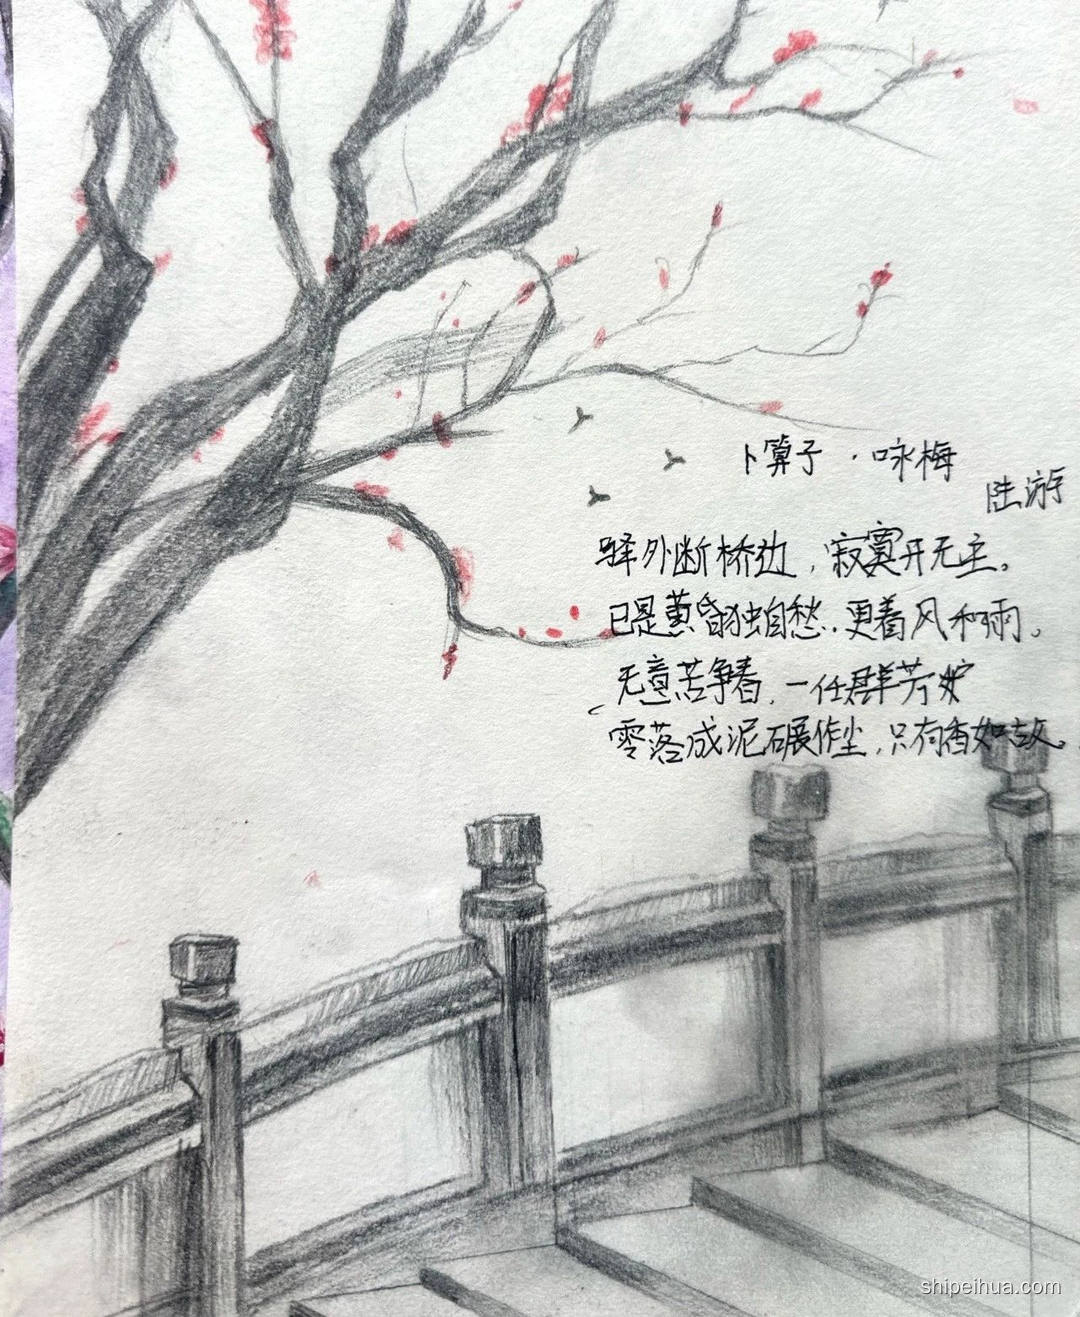 卜算子·咏梅
陆游
驿外断桥边,寂寞开无主。
已是黄昏独自愁.更着风和雨。
无意苦争春,一任群芳妒
零落成泥碾作尘,只有香如故。
shipeihua.com